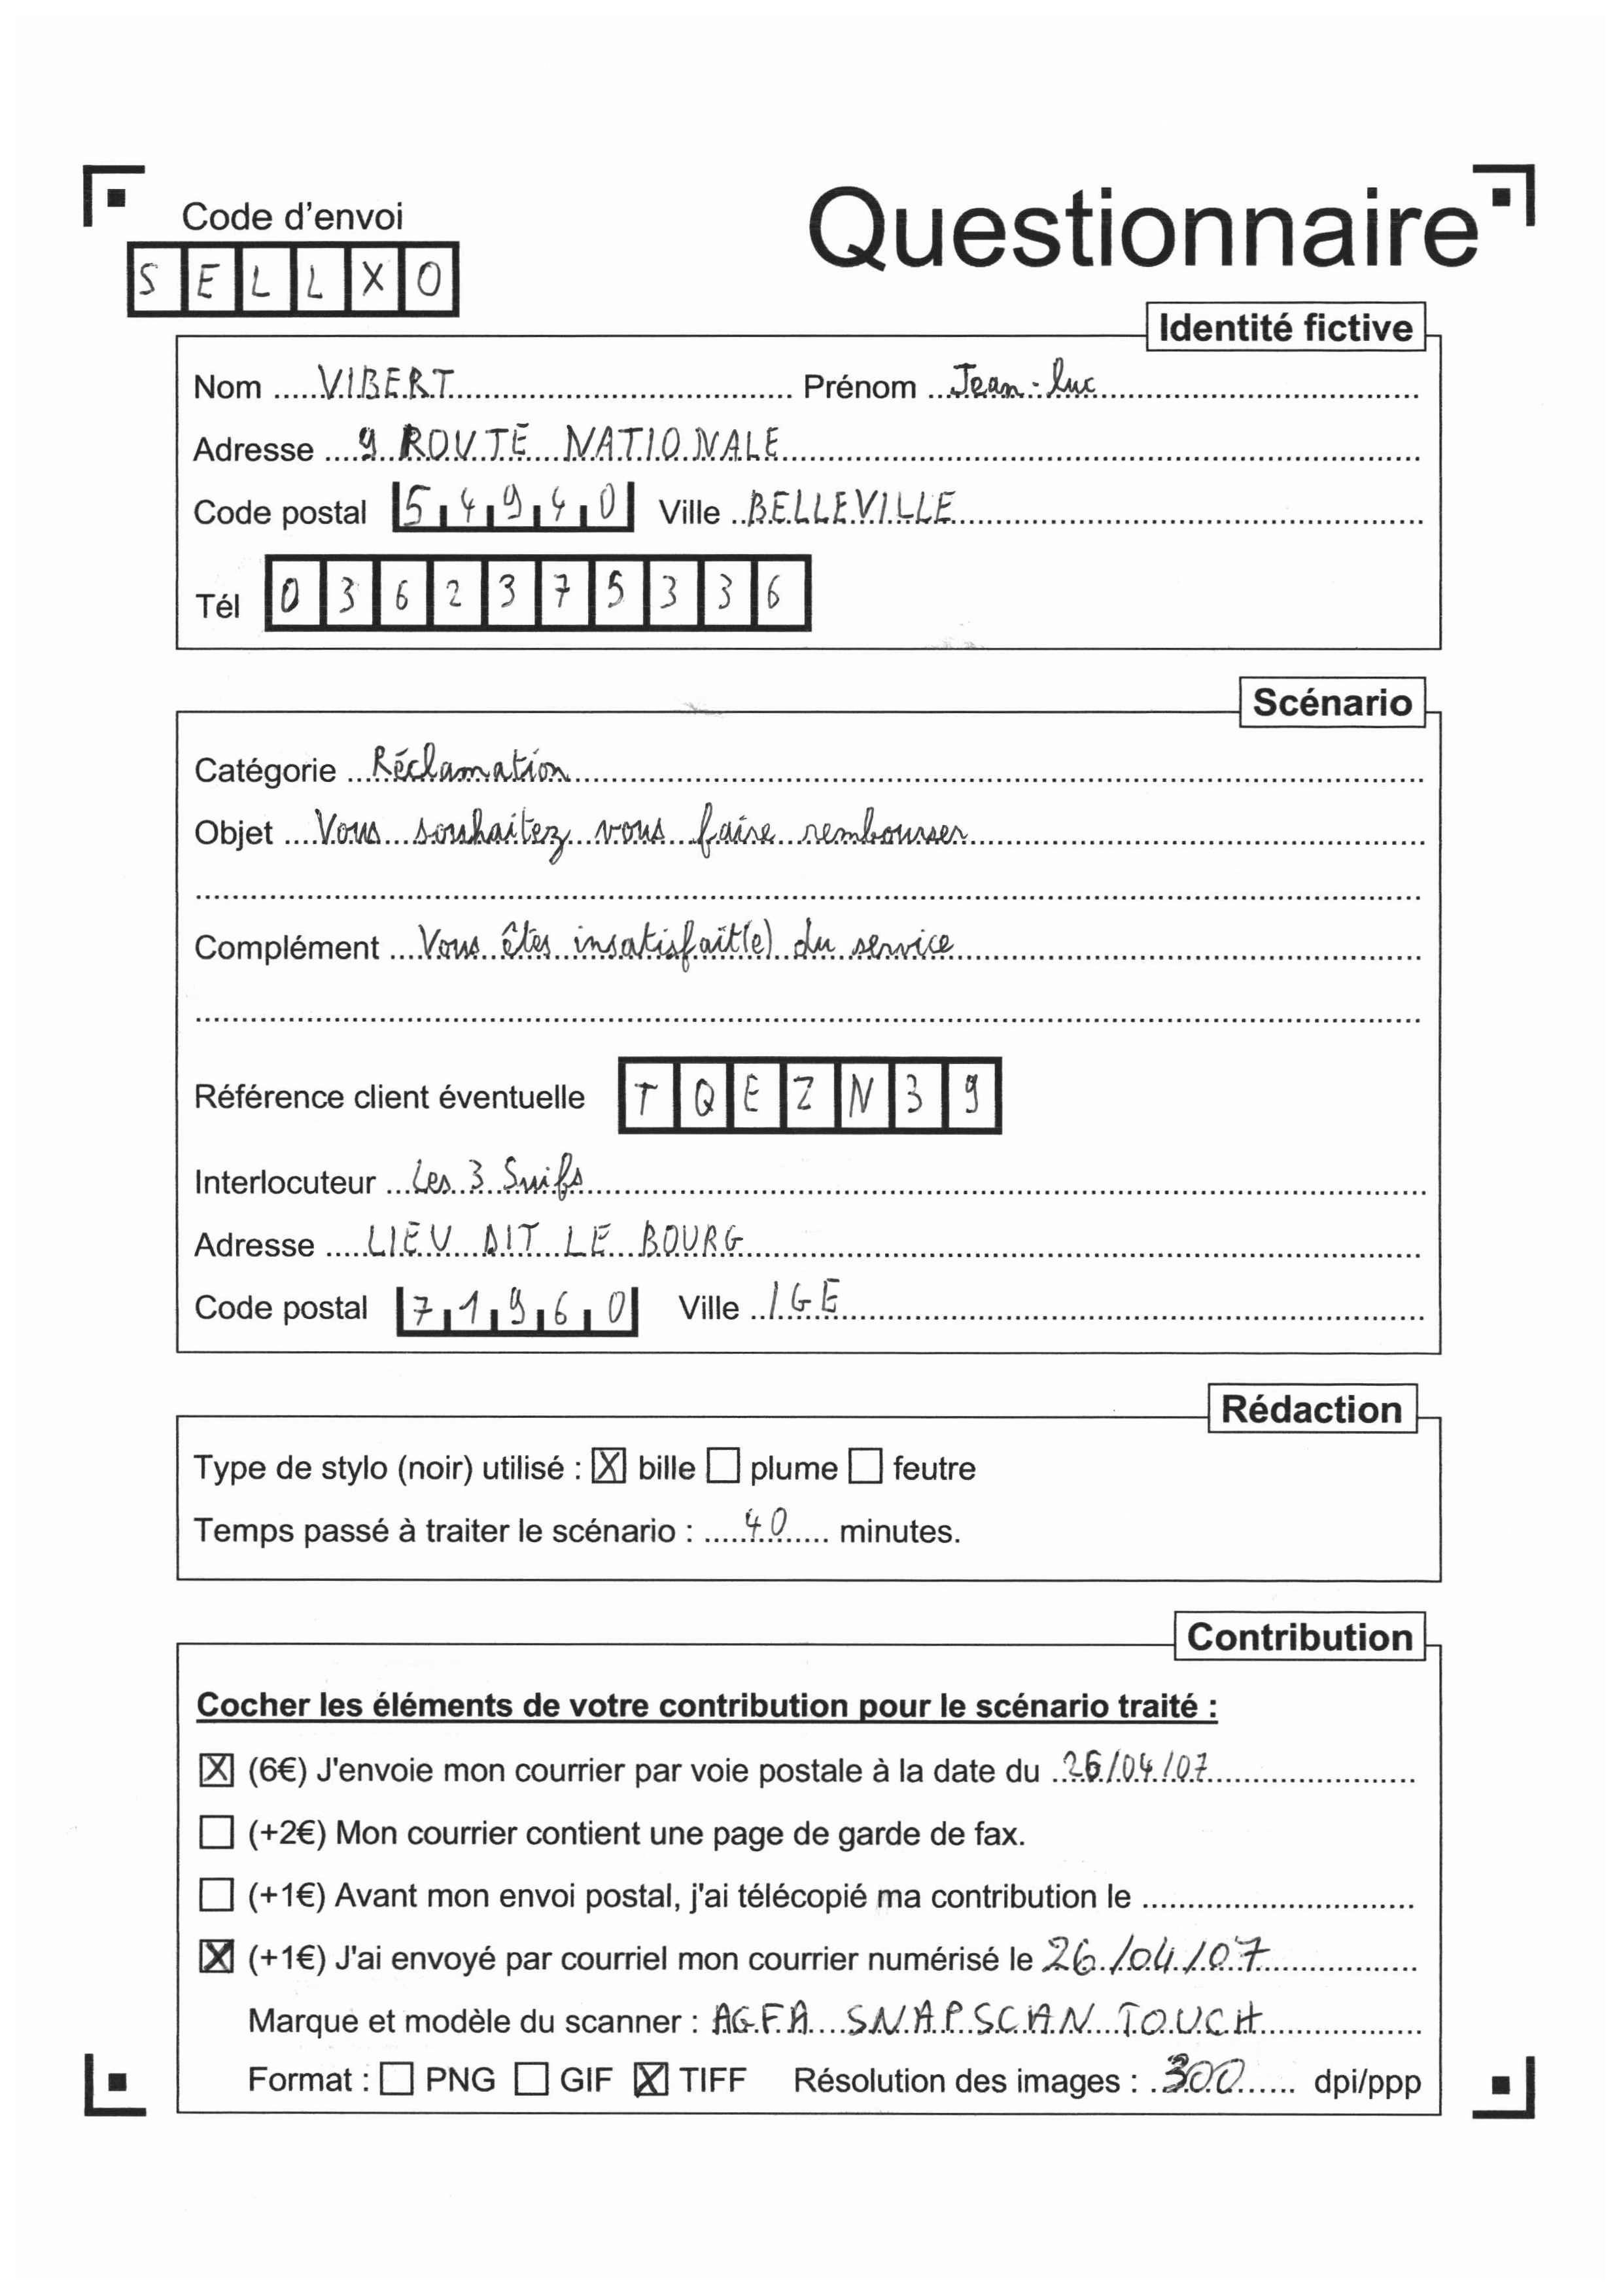 Code d'envoi
SELLXO
Questionnaire
Identité fictive
Nom VIBERT Prénom Jean-luc
Adresse 9 ROUTE NATIONALE
Code postal 54940 Ville BELLEVILLE
Tél 0362375336
Scénario
Catégorie Réclamation
Objet Vous souhaitez vous faire rembourser
Complément Vous êtes insatisfait(e) du service
Référence client éventuelle TQEZN39
Interlocuteur Les 3 Suifs
Adresse LIEU DIT LE BOURG
Code postal 71960 Ville IGE
Rédaction
Type de stylo (noir) utilisé : ☒ bille ☐ plume ☐ feutre
Temps passé à traiter le scénario : 40 minutes.
Contribution
Cocher les éléments de votre contribution pour le scénario traité :
☒ (6€) J'envoie mon courrier par voie postale à la date du 26/04/07
☐ (+2€) Mon courrier contient une page de garde de fax.
☐ (+1€) Avant mon envoi postal, j'ai télécopié ma contribution le
☒ (+1€) J'ai envoyé par courriel mon courrier numérisé le 26/04/07
Marque et modèle du scanner : AGFA SNAPSCAN TOUCH
Format : ☐ PNG ☐ GIF ☒ TIFF Résolution des images : 300 dpi/ppp